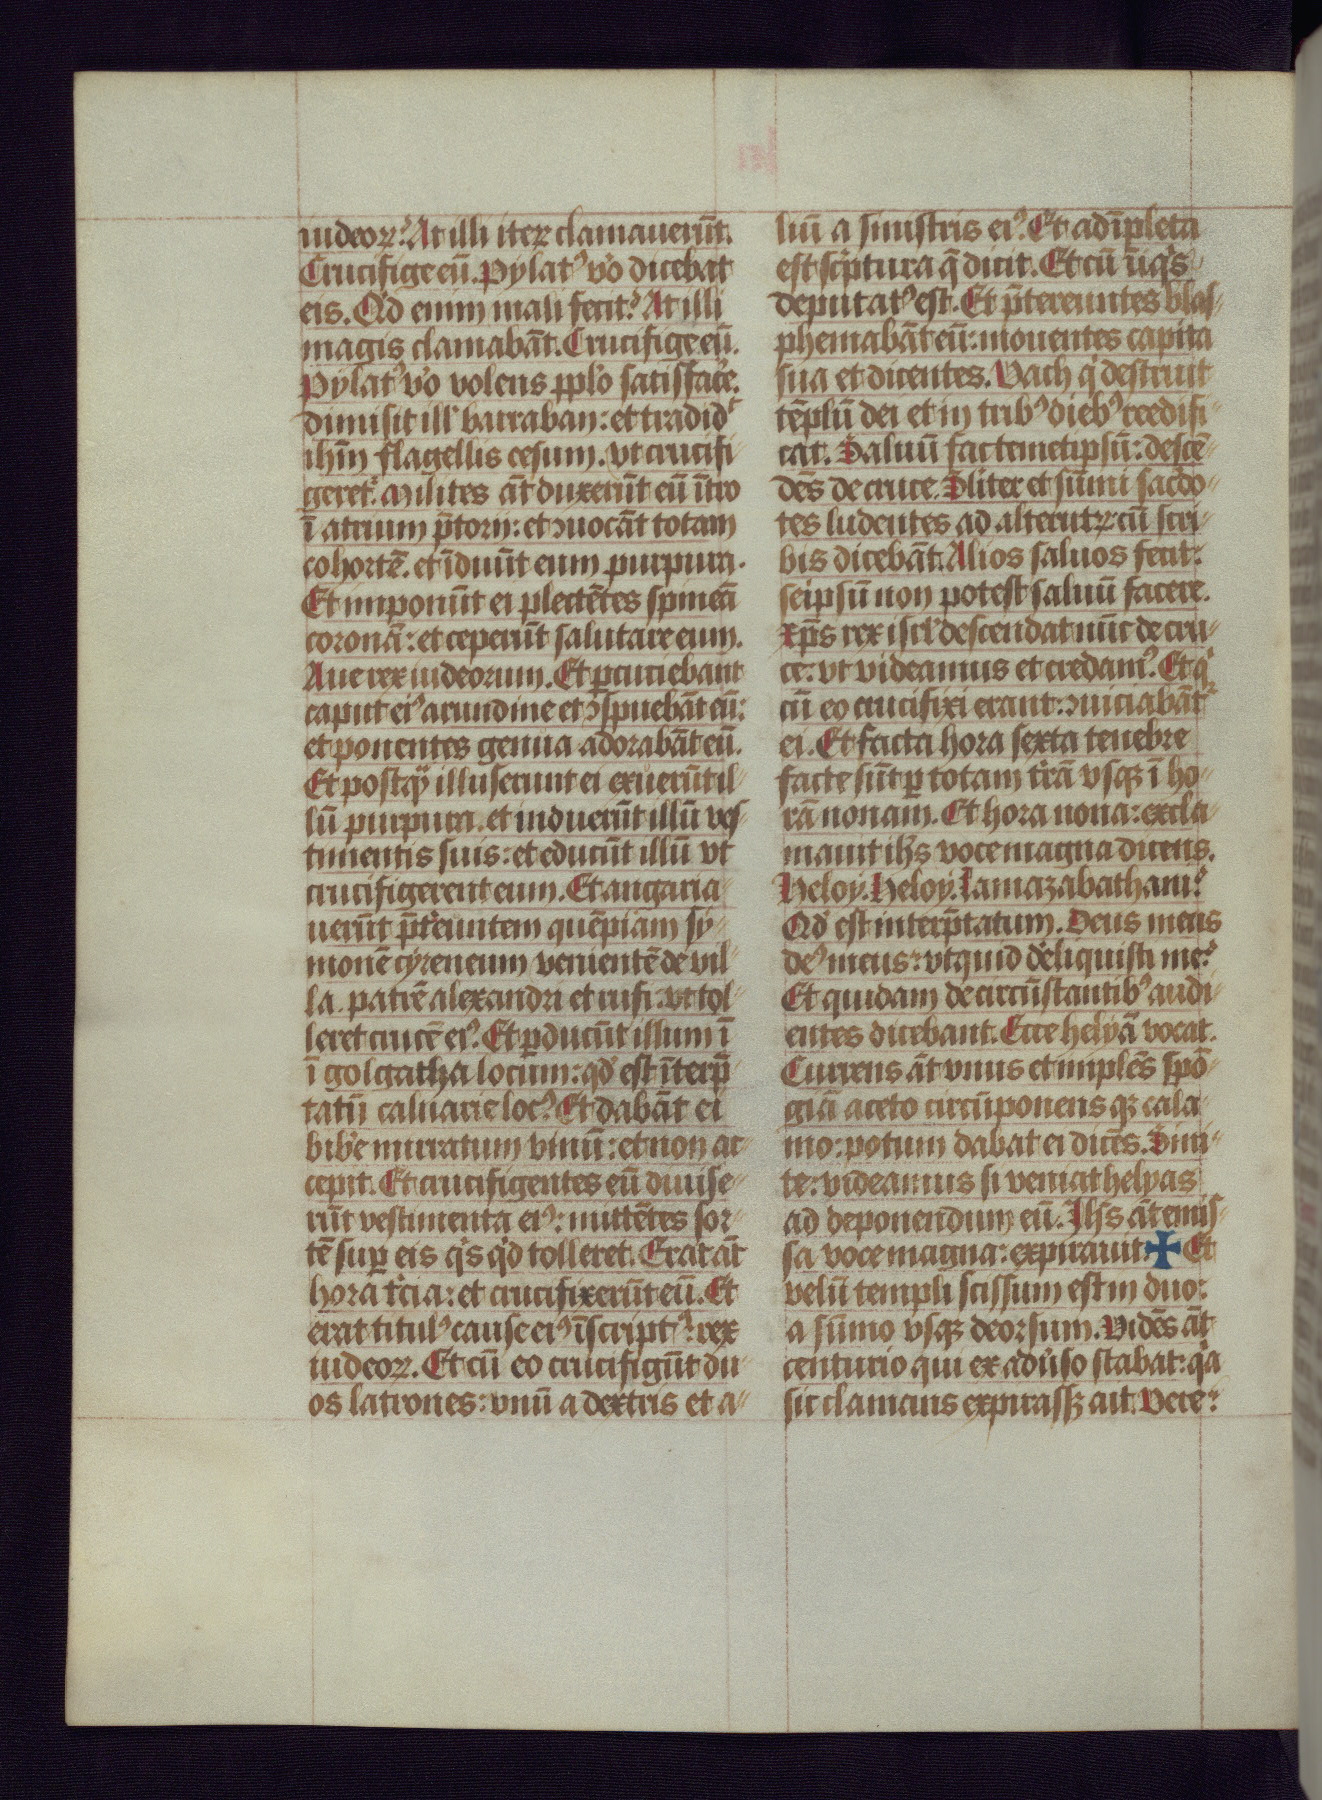 iudeoꝝ? At illi iteꝝ clamauerūt.
Crucifige eū. Pylatꝰ v̓o dicebat
eis. Qͥd enim mali fecit? At illi
magis clamabāt. Crucifige eū.
Pylatꝰ v̓o volens pplo̓ satisfac̓e.
dimisit ill̓ barraban: et tradidͭ
ihm̄ flagellis cesum. vt crucifi-
geret᷑. Milites āt duxerūt eū ītro
ī atrium p̄torii: et ꝯuocāt totam
cohortē. et īduūt eum purpura.
Et imponūt ei plectētes spineā
coronā: et ceperūt salutare eum.
Aue rex iudeorum. Et ꝑcuciebant
caput eiꝰ arundine et ꝯspuebāt eū:
et ponentes genua adorabāt eū.
Et postqͣ illuserunt ei exuerūt il-
lū purpura. et induerūt illū ves-
timentis suis: et educūt illū vt
crucifigerent eum. Et angaria-
uerūt p̄t̓euntem quēpiam sy-
monē cyreneum venientē de vil-
la. patrē alexandri et rufi: vt tol-
leret crucē eiꝰ. Et ꝑducūt illum ī
ī golgatha locum: qd̓ est īterp̄-
tatū caluarie locꝰ. Et dabāt ei
bib̓e mirratum vinū: et non ac-
cepit. Et crucifigentes eū diuise-
rūt vestimenta eiꝰ: mittētes sor-
tē suꝑ eis qͥs qͥd tolleret. Erat āt
hora t̓cia: et crucifixerūt eū. Et
erat titulꝰ cause eiꝰ īscriptꝰ: rex
iudeoꝝ. Et cū eo crucifigūt du-
os latrones: vnū a dextris et a-
liū a sinistris eiꝰ. Et adīpleta
est sc̓ptura q̄ dicit. Et cū īiqͥs
deputatꝰ est. Et p̄tereuntes blas-
phemabāt eū: mouentes capita
sua et dicentes. Vach qͥ destruit
tēplū dei et in tribꝰ diebꝰ reedifi-
cat. Saluū fac temetipsū: descē-
dēs de cruce. Sliter et sūmi sac̓do-
tes ludentes ad alterutꝝ cū scri-
bis dicebāt. Alios saluos fecit:
seipsū non potest saluū facere.
xp̄s rex isrl̓ descendat nūc de cru-
ce: vt videamus et credamꝰ. Et qͥ
cū eo crucifixi erant: ꝯuiciabāt᷑
ei. Et facta hora sexta tenebre
facte sūt ꝑ totam t̓rā vsqꝫ ī ho-
rā nonam. Et hora nona: excla-
mauit ihs̄ voce magna dicens.
Heloy. Heloy. lamazabathani?
Qd̓ est interp̄tatum. Deus meus
deꝰ meus: vtquid deliquisti me?
Et quidam de circūstantibꝰ audi-
entes dicebant. Ecce helyā vocat.
Currens āt vnus et implēs spō-
giā aceto circūponens qꝫ cala-
mo: potum dabat ei dicēs. Sini-
te: videamus si veniat helyas
ad deponendum eū. Ihs̄ āt emis-
sa voce magna: expirauit ✠ Et
velū templi scissum est in duo:
a sūmo vsqꝫ deorsum. Vidēs āt
centurio qui ex adu̓so stabat: qͥa
sic clamans expirassꝫ ait. Vere: